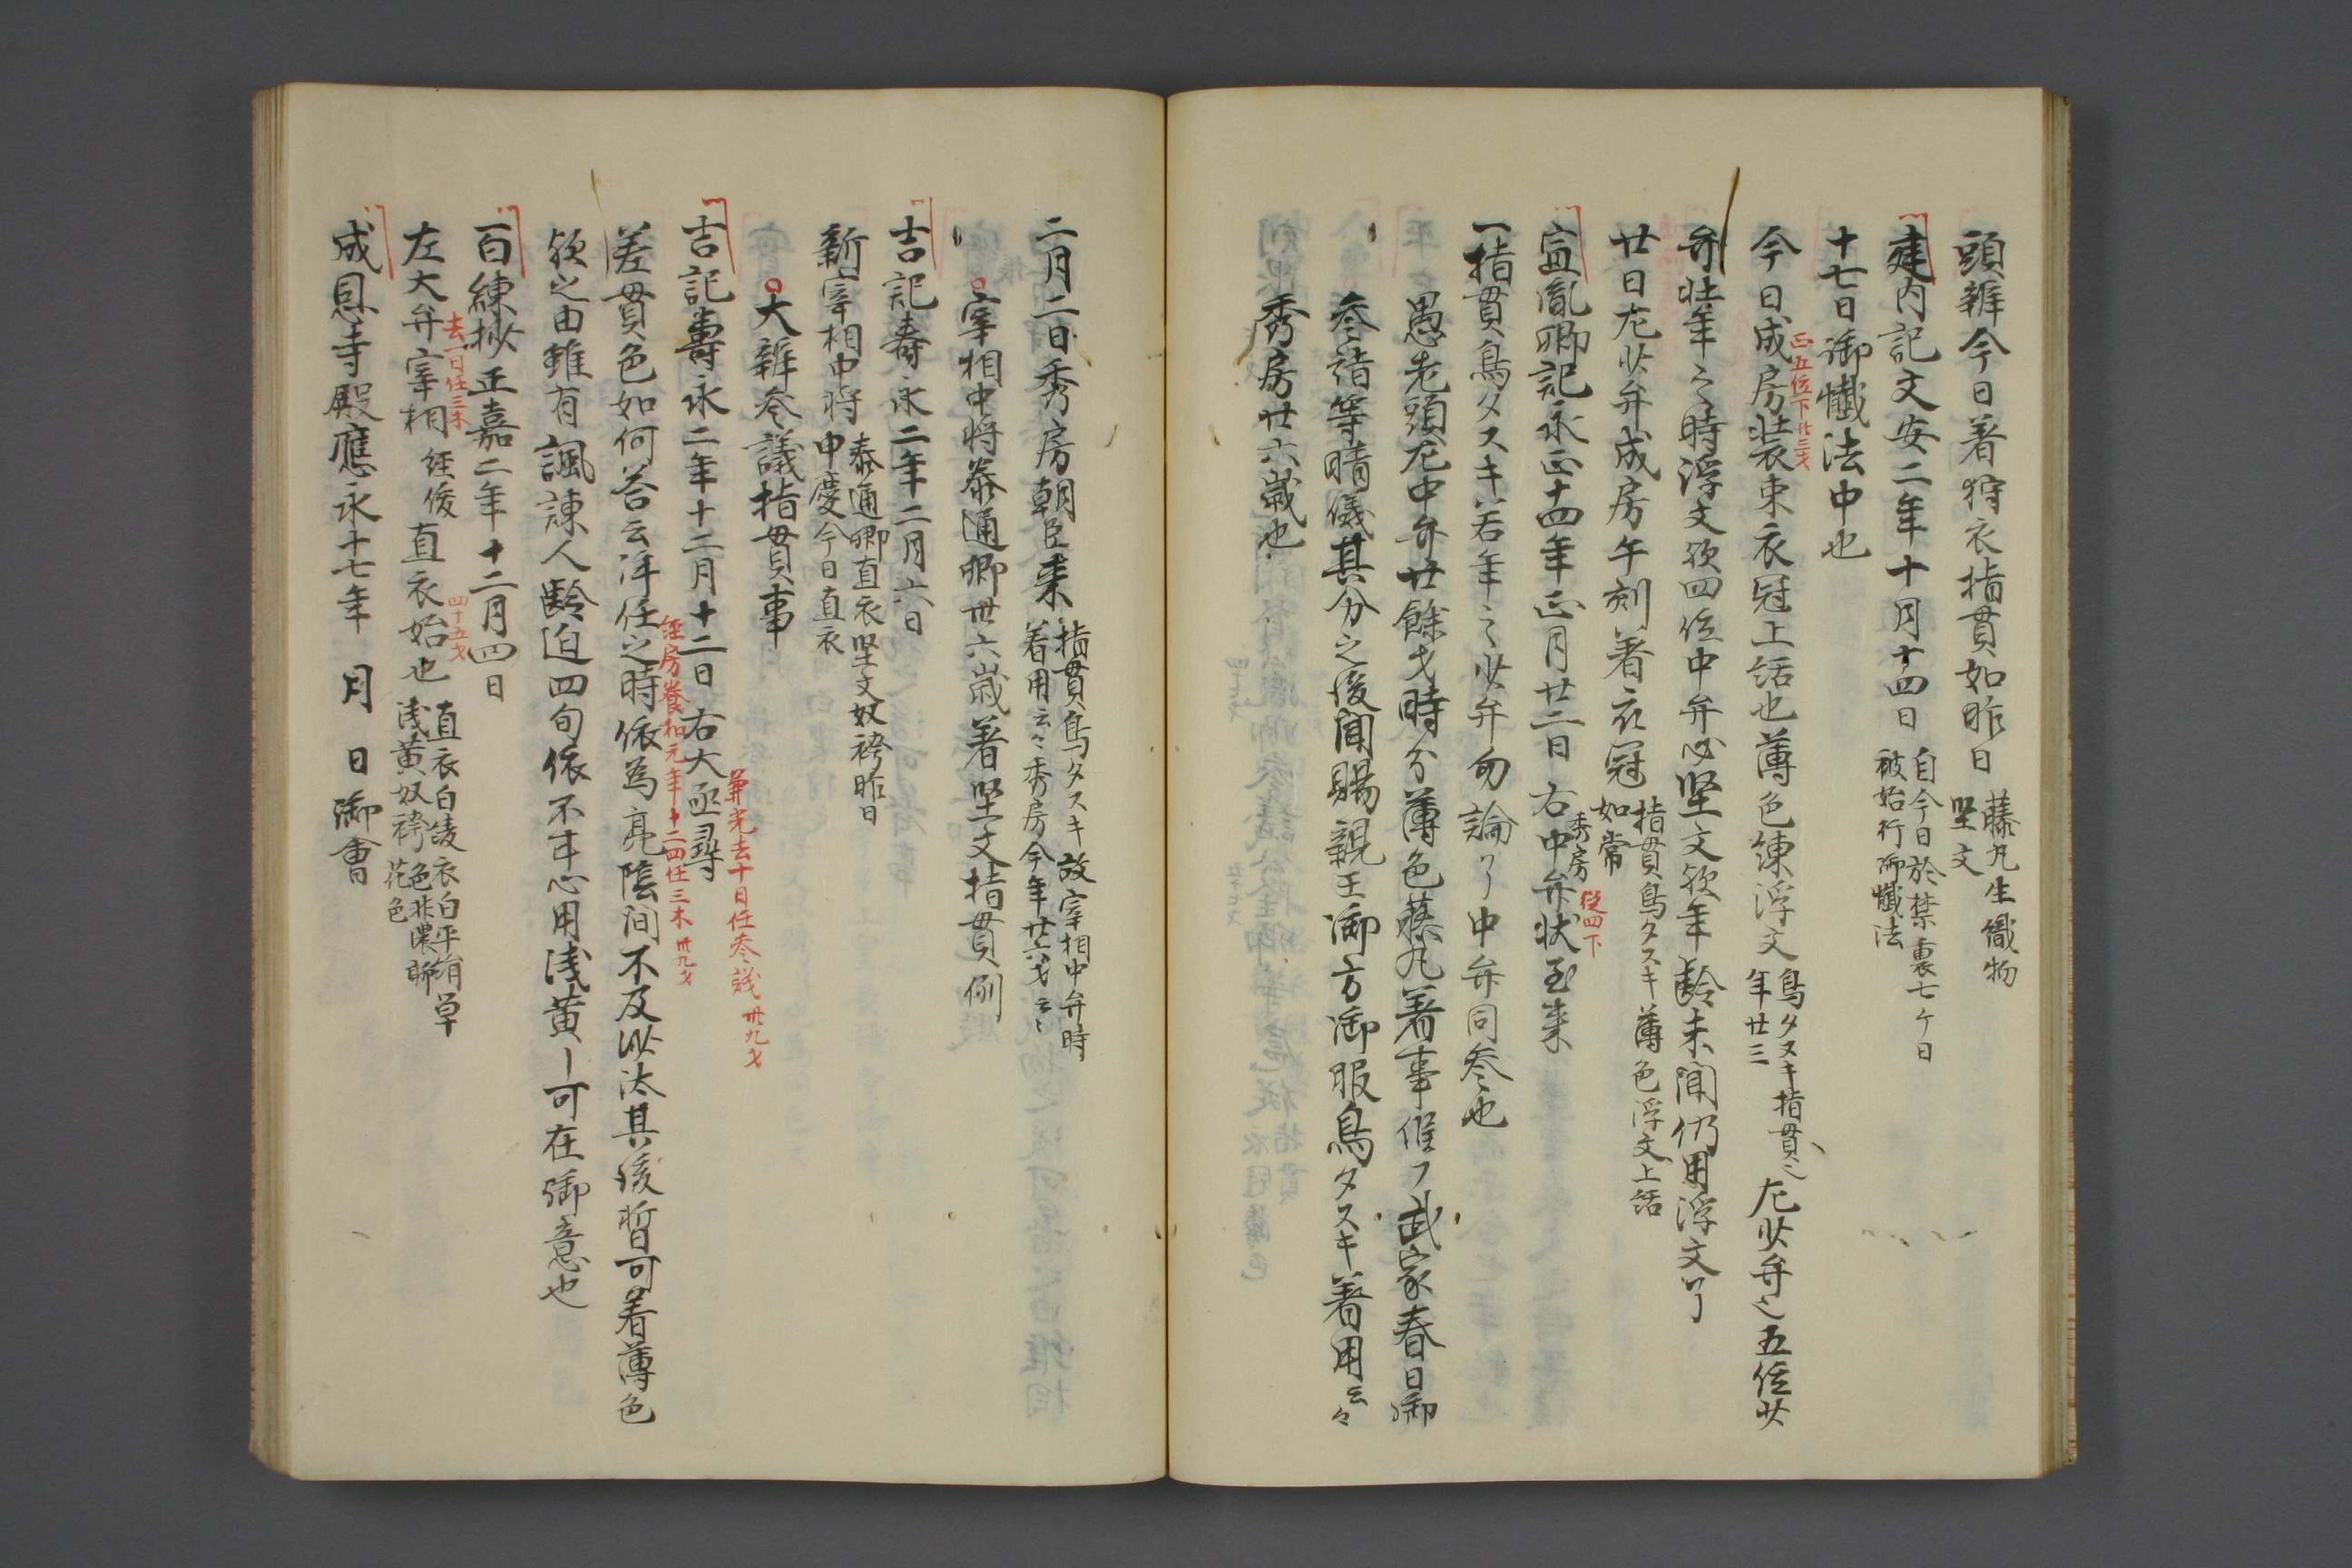 頭辨今日著狩衣指貫如昨日
藤丸生織物
堅文
建内記文安二年十月十四日
自今日於禁裏七ケ日
被始行御懺法
十七日御懺法中也
正五位下廿三才
今日成房装束衣冠上括也薄色練浮文
鳥タスキ指貫
年廿三
左少弁之五位少
弁壮年之時浮文欤四位中弁必堅文欤年齢未闌仍用浮文了
廿日左少弁成房午剋著衣冠如常
指貫鳥タスキ薄色浮文上括
宣胤卿記永正十四年正月廿二日右中弁状到来
秀房
従四下
一指貫鳥タスキ若年之少弁勿論了中弁同参也
愚老頭左中弁廿餘才時分薄色藤丸著事候フ武家春日御
参詣等晴儀其分之後聞賜親王御方御服鳥タスキ著用云々
秀房廿六歳也
二月二日秀房朝臣来
指貫鳥タスキ故宰相中弁時
着用云々秀房今年廿六才云々
宰相中将泰通卿卅六歳著堅文指貫例
吉記寿永二年二月六日
新宰相中将
泰通卿直衣堅文奴袴昨日
申慶今日直衣
大辨参議指貫事
兼光去十日任参議卅九才
吉記壽永二年十二月十二日右大丞尋
経房養和元年十二四任三木卅九才
差貫色如何答云洋任之時依為亮陰間不及沙汰其後暫可着薄色
欤之由雖有諷諫人齢迫四旬依不甘心用浅黄可在御意也
百練抄正嘉二年十二月四日
去一日任三木
四十五才
左大弁宰相経俊直衣始也
直衣白綾衣白平絹単
浅黄奴袴色非濃聊
花色
成恩寺殿應永十七年 月 日御會